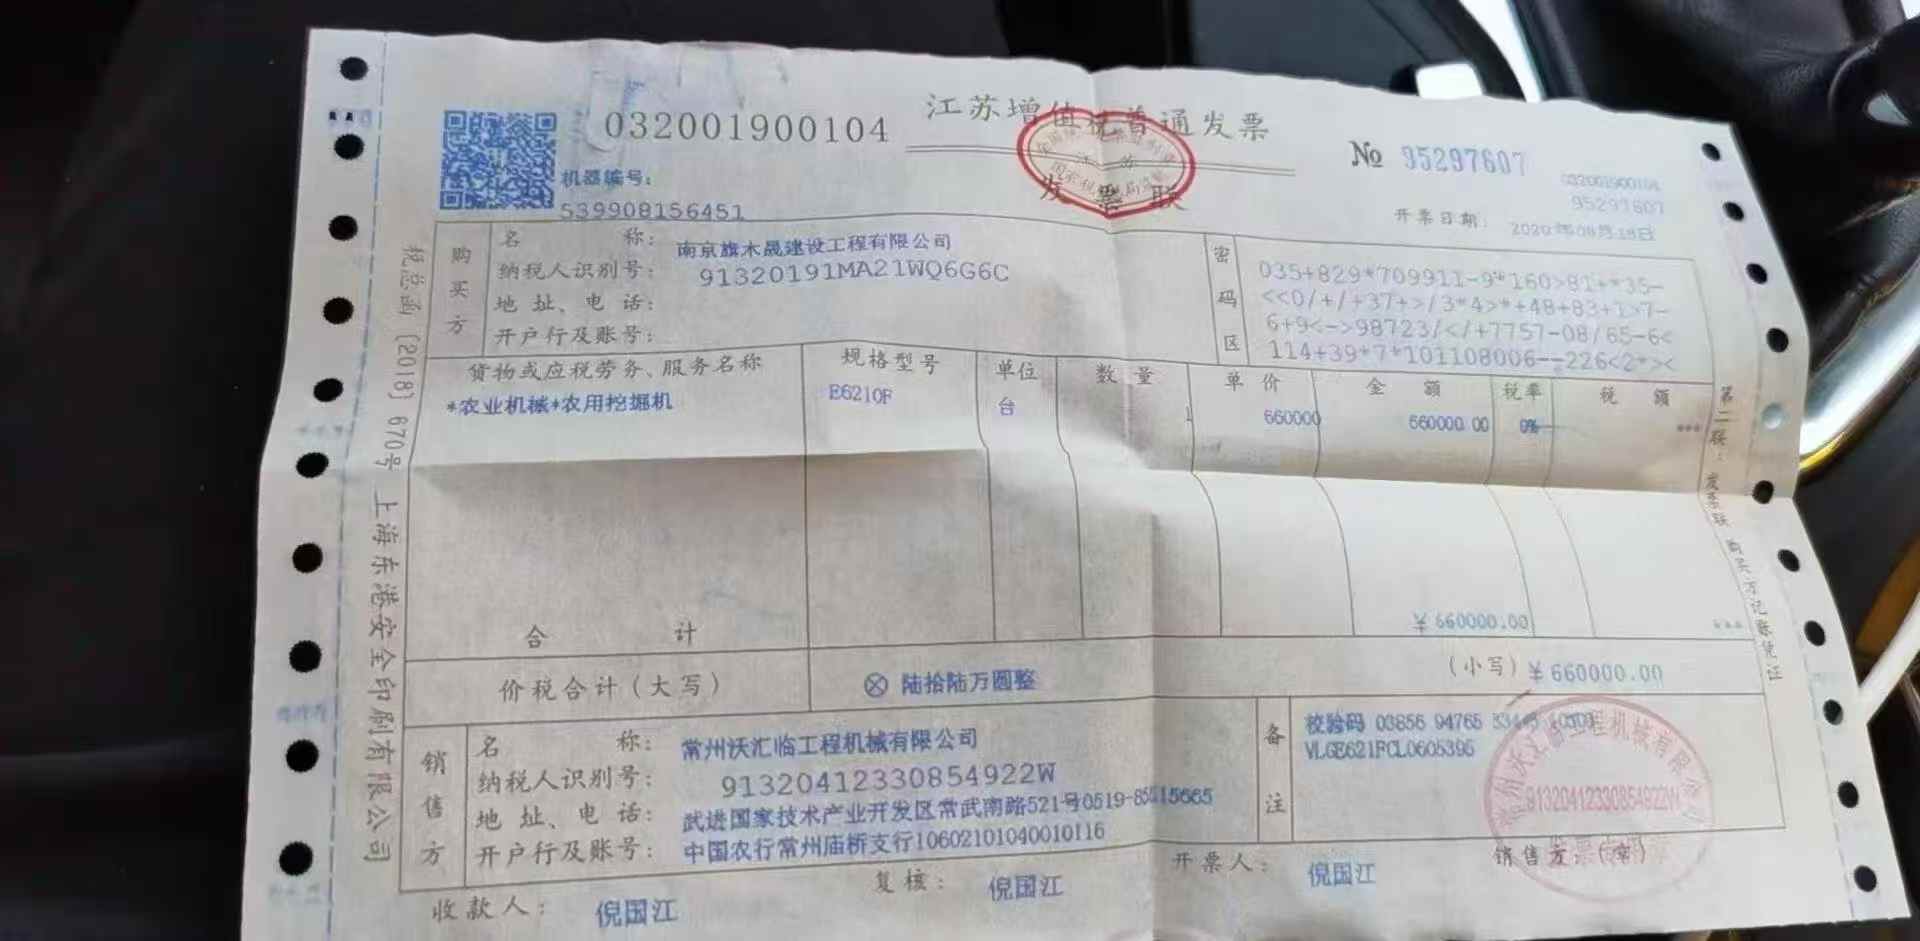 032001900104
江苏增值税普通发票
发票联
No 95297607
032001900104
95297607
机器编号:
539908156451
开票日期:
购买方
名 称: 南京旗木晟建设工程有限公司
纳税人识别号: 91320191MA21WQ6G6C
地 址、电 话:
开户行及账号:
密码区
035+829*709911-9*160>81+*35-
<<0/+/+37+>/3*4>*+48+83+1>7-
6+9<->98723/</+7757-08/65-6<
114+39*7*101108006--226<2*><
货物或应税劳务、服务名称 规格型号 单位 数 量 单 价 金 额 税率 税 额
*农业机械*农用挖掘机 E6210F 台 1 660000 660000.00 0% ***
合 计 ¥660000.00 ***
价税合计(大写) ⊗ 陆拾陆万圆整 (小写) ¥660000.00
销售方
名 称: 常州沃汇临工程机械有限公司
纳税人识别号: 91320412330854922W
地 址、电 话: 武进国家技术产业开发区常武南路521号0519-85515665
开户行及账号: 中国农行常州庙桥支行10602101040010116
备注
校验码 03856 94765
VLGE621FCL0605395
常州沃汇临工程机械有限公司
91320412330854922W
发票专用章
收款人: 倪国江 复核: 倪国江 开票人: 倪国江 销售方:(章)
税总函〔2018〕670号 上海东港安全印刷有限公司
第二联:发票联 购买方记账凭证